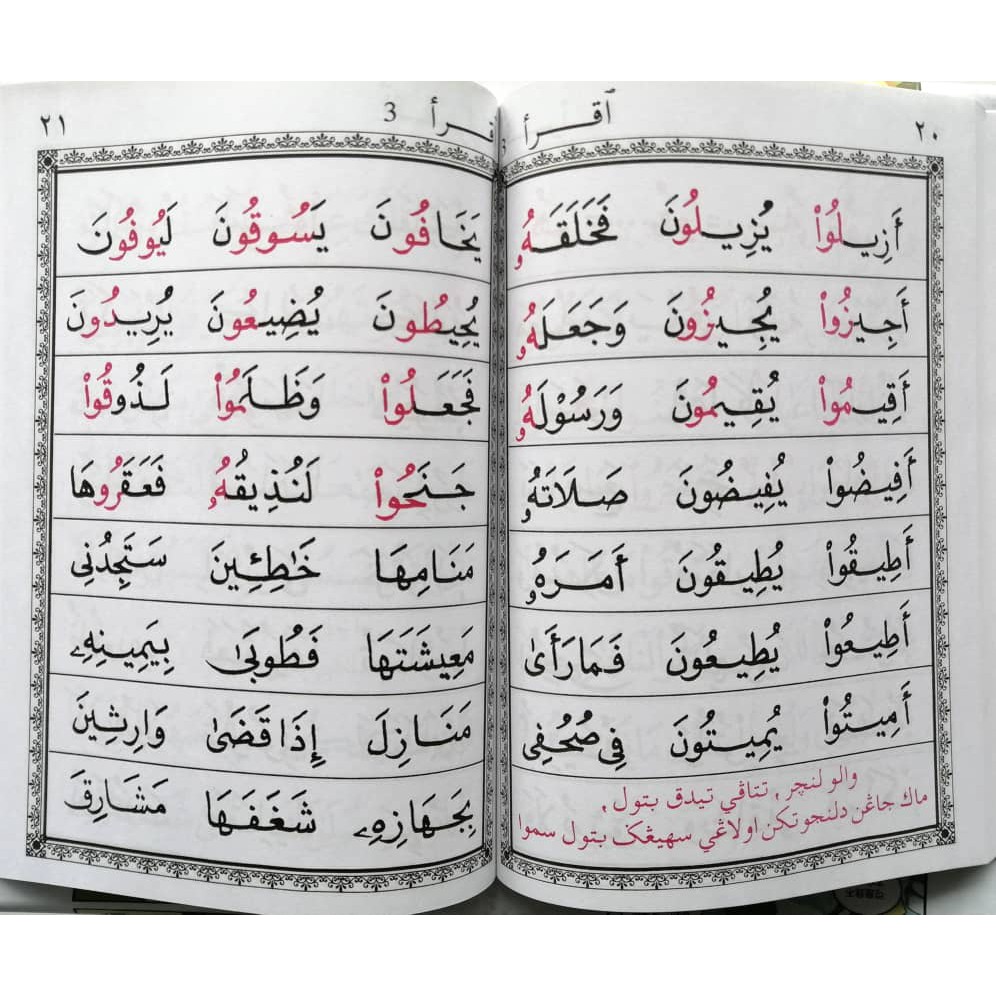 ٢٠ ٱقـــرأ
أَزِيلُوْا يُزِيلُونَ فَخَلَقَهُۥ
أَجِيزُوْا يُجِيزُونَ وَجَعَلَهُۥ
أَقِيمُوْا يُقِيمُونَ وَرَسُوْلَهُۥ
أَفِيضُوْا يُفِيضُونَ صَلَاتَهُۥ
أَطِيقُوْا يُطِيقُونَ أَمَرَهُۥ
أَطِيعُوْا يُطِيعُونَ فَمَارَأَىٰ
أَمِيتُوْا يُمِيتُونَ فِي صُحُفِي
والو لنچر , تتاڤي تيدق بتول ,
ماك جاڠن دلنجوتكن اولاڠي سهيڠݢ بتول سموا
ـقـرأ 3 ٢١
يَخَافُونَ يَسُوقُونَ لَيُوفُونَ
يُحِيطُونَ يُضِيعُونَ يُرِيدُونَ
فَجَعَلُوْا وَظَلَمُوْا لَذُوقُوْا
جَنَحُوْا لَنُذِيقُهُۥ فَعَقَرُوهَا
مَنَامِهَا خَٰطِـِٔينَ سَتَجِدُنِي
مَعِيشَتَهَا فَطُوبَىٰ بِيَمِينِهِۦ
مَنَازِلَ إِذَا قَضَىٰ وَارِثِينَ
بِجَهَازِهِۦ شَغَفَهَا مَشَارِقَ